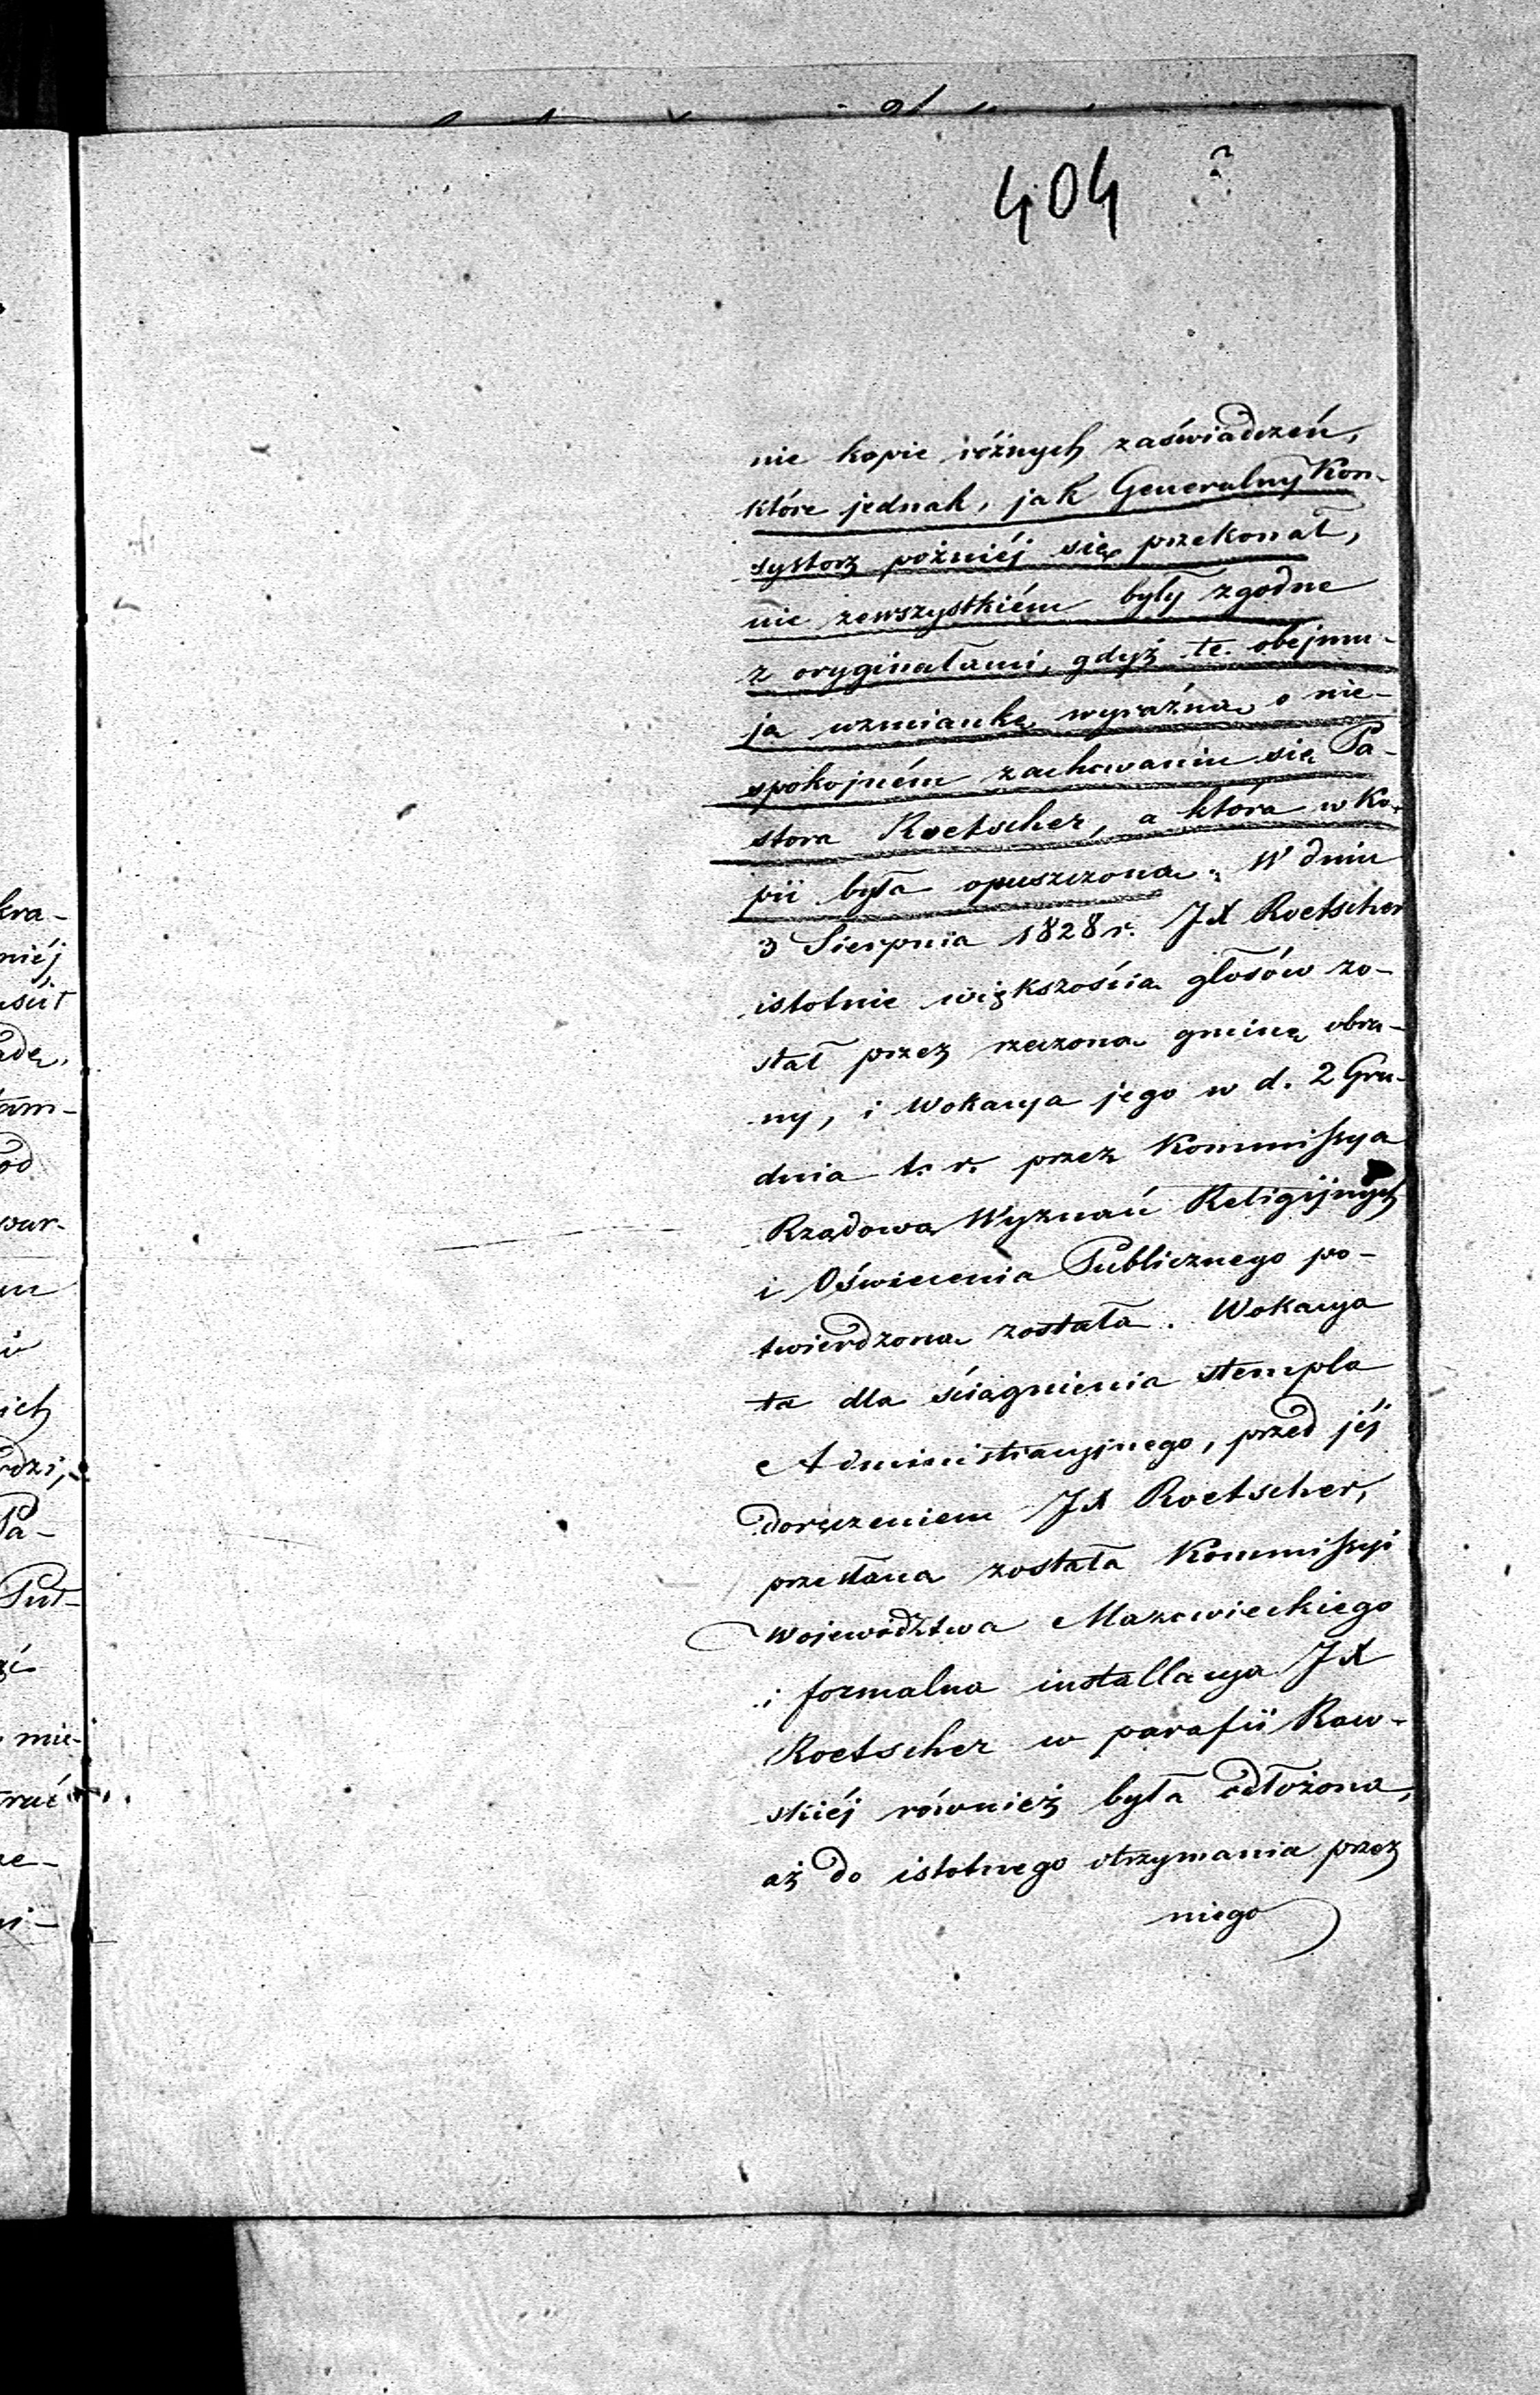 404
nie kopie różnych zaświadczeń,
które jednak, jak Generalny Kon-
systorz poźniéj się przekonał,
nie zewszystkiém były zgodne
z oryginałami, gdyż te obejmu-
ją wzmiankę wyraźną o nie-
spokojném zachowaniu się Pa-
stora Roetscher, a która w Ko-
pii była opuszczoną. W dniu
3 Sierpnia 1828 r. JX Roetscher
istotnie większością głosów zo-
stał przez rzeczoną gminę obra-
ny, i Wokacya jego w d. 2 Gru-
dnia t. r. przez Kommissyą
Rządową Wyznań Religijnych
i Oświecenia Publicznego po-
twierdzoną została. Wokacya
ta dla ściągnienia stempla
Administracyjnego, przed jéj
doręczeniem JX Roetscher,
przesłana została Kommissyi
Województwa Mazowieckiego
i formalna installacya JX
Roetscher w parafii Raw-
skiéj również była odłożoną,
aż do istotnego otrzymania przez
niego
kra-
niéj
usił
adę,
tam-
od
war-
m
ich
rdzi,
Pa-
mie-